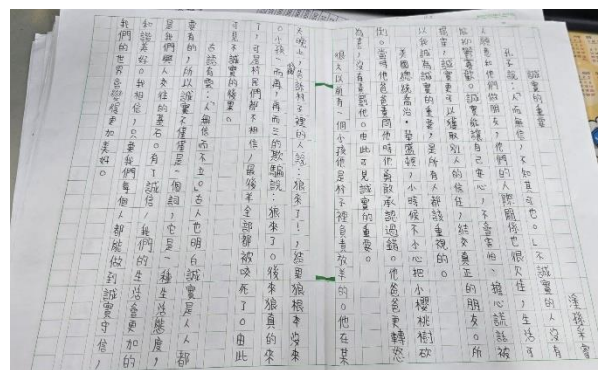 誠實的重要
孔子說：「人而無信，不知其可也。」不誠實的人沒有
人願意和他們做朋友，他們的人際關係也很欠佳，生活可
以獲得誠實能讓自己安心，不會害怕、擔心謊話被
揭穿，誠實更可以獲取別人的信任，結交真正的朋友。所
以我認為誠實的重要，是所有人都該重視的。
美國總統喬治·華盛頓，小時候不小心把小櫻桃樹砍
倒。當時他爸爸責問他時他勇敢承認過錯。他爸爸更轉怒
為喜，沒有責罰他。由此可見誠實的重要。
很久以前有一個小孩他是村子裡負責放羊的。他在某
天晚上，告訴村子裡的人說：狼來了！，結果狼根本沒來
。小孩一而再，再而三的欺騙說：狼來了。後來狼真的來
了，可是村民們都不相信，最後羊全部都被咬死了。由此
可見不誠實的後果。
古語有云：「人無信而不立。」古人也明白誠實是人人都
要有的，所以誠實不僅僅是一個詞，它是一種生活態度，
是我們與人交往的基石。有了誠信，我們的生活會更加的
和諧美好。我相信，只要我們每個人都能做到誠實守信，
我們的世界會變得更加美好。